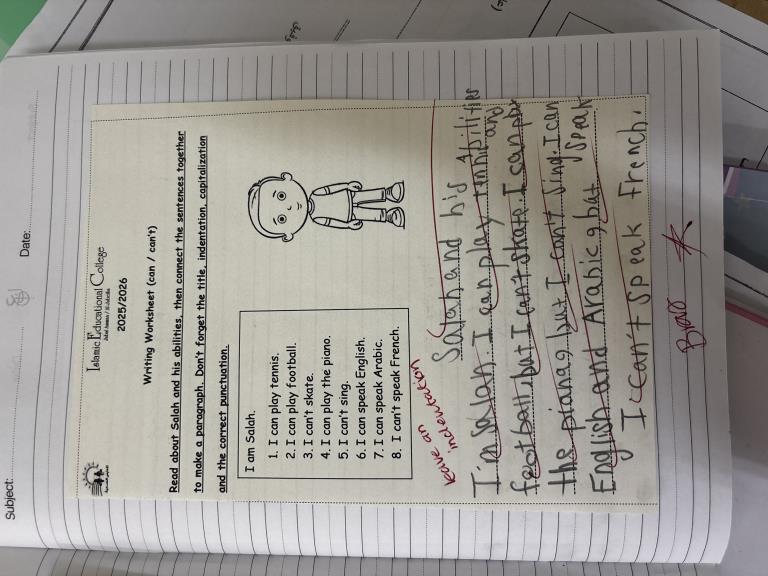 Subject:
Date:
Islamic Educational College
2025/2026
Writing Worksheet (can / can't)
Read about Salah and his abilities, then connect the sentences together
to make a paragraph. Don't forget the title, indentation, capitalization
and the correct punctuation.
I am Salah.
1. I can play tennis.
2. I can play football.
3. I can't skate.
4. I can play the piano.
5. I can't sing.
6. I can speak English.
7. I can speak Arabic.
8. I can't speak French.
leave an
indentation
Salah and his abilities
I'm Salah. I can play tennis and
football, but I can't skate. I can play
the piano, but I can't sing. I can
speak
English and Arabic, but
I can't speak French.
Bravo